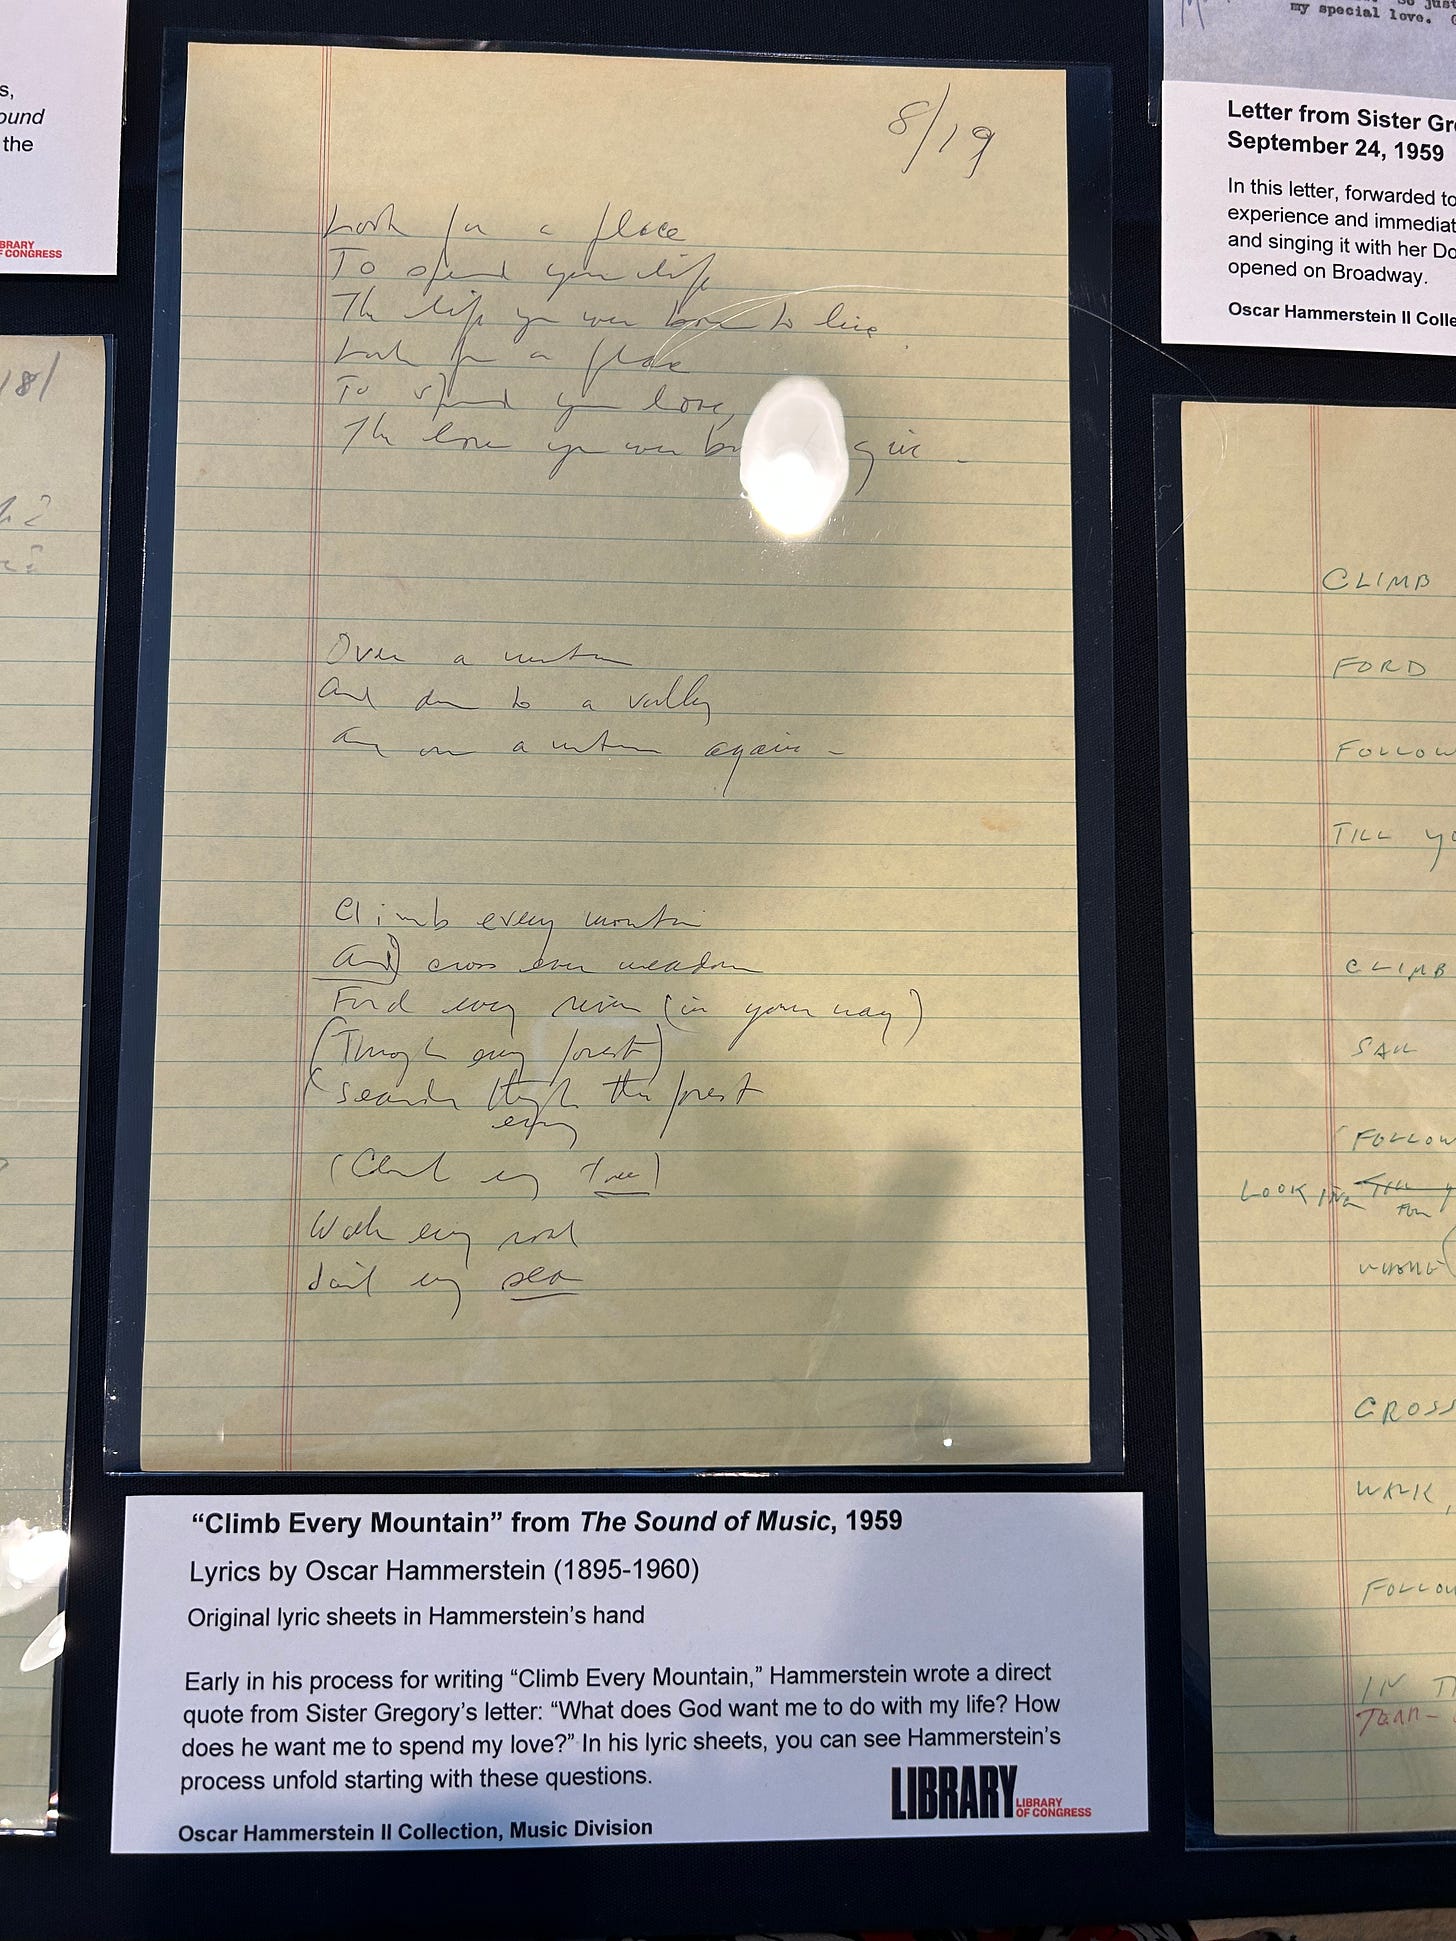 s,
ound
the
BRARY
F CONGRESS
18/
8/19
Look for a place
To spend your life
The life you were born to live.
Look for a place
To spend your love,
The love you were give -
Over a mountain
And down to a valley
a mountain again -
Climb every mountain
And) cross every meadow
Ford every river (in your way)
(Through every forest)
(search through the forest
every
(Climb every tree)
Walk every road
Sail every sea
"Climb Every Mountain" from The Sound of Music, 1959
Lyrics by Oscar Hammerstein (1895-1960)
Original lyric sheets in Hammerstein's hand
Early in his process for writing "Climb Every Mountain," Hammerstein wrote a direct
quote from Sister Gregory's letter: "What does God want me to do with my life? How
does he want me to spend my love?" In his lyric sheets, you can see Hammerstein's
process unfold starting with these questions.
Oscar Hammerstein II Collection, Music Division
LIBRARY
LIBRARY
OF CONGRESS
So just
my special love.
Letter from Sister Gr
September 24, 1959
In this letter, forwarded to
experience and immediat
and singing it with her Do
opened on Broadway.
Oscar Hammerstein II Colle
CLIMB
FORD
FOLLOW
TILL yo
CLIMB
SAIL
FOLLOW
LOOKING TILL
FOR
CROSS
WALK
FOLLOW
IN T
TEAR-